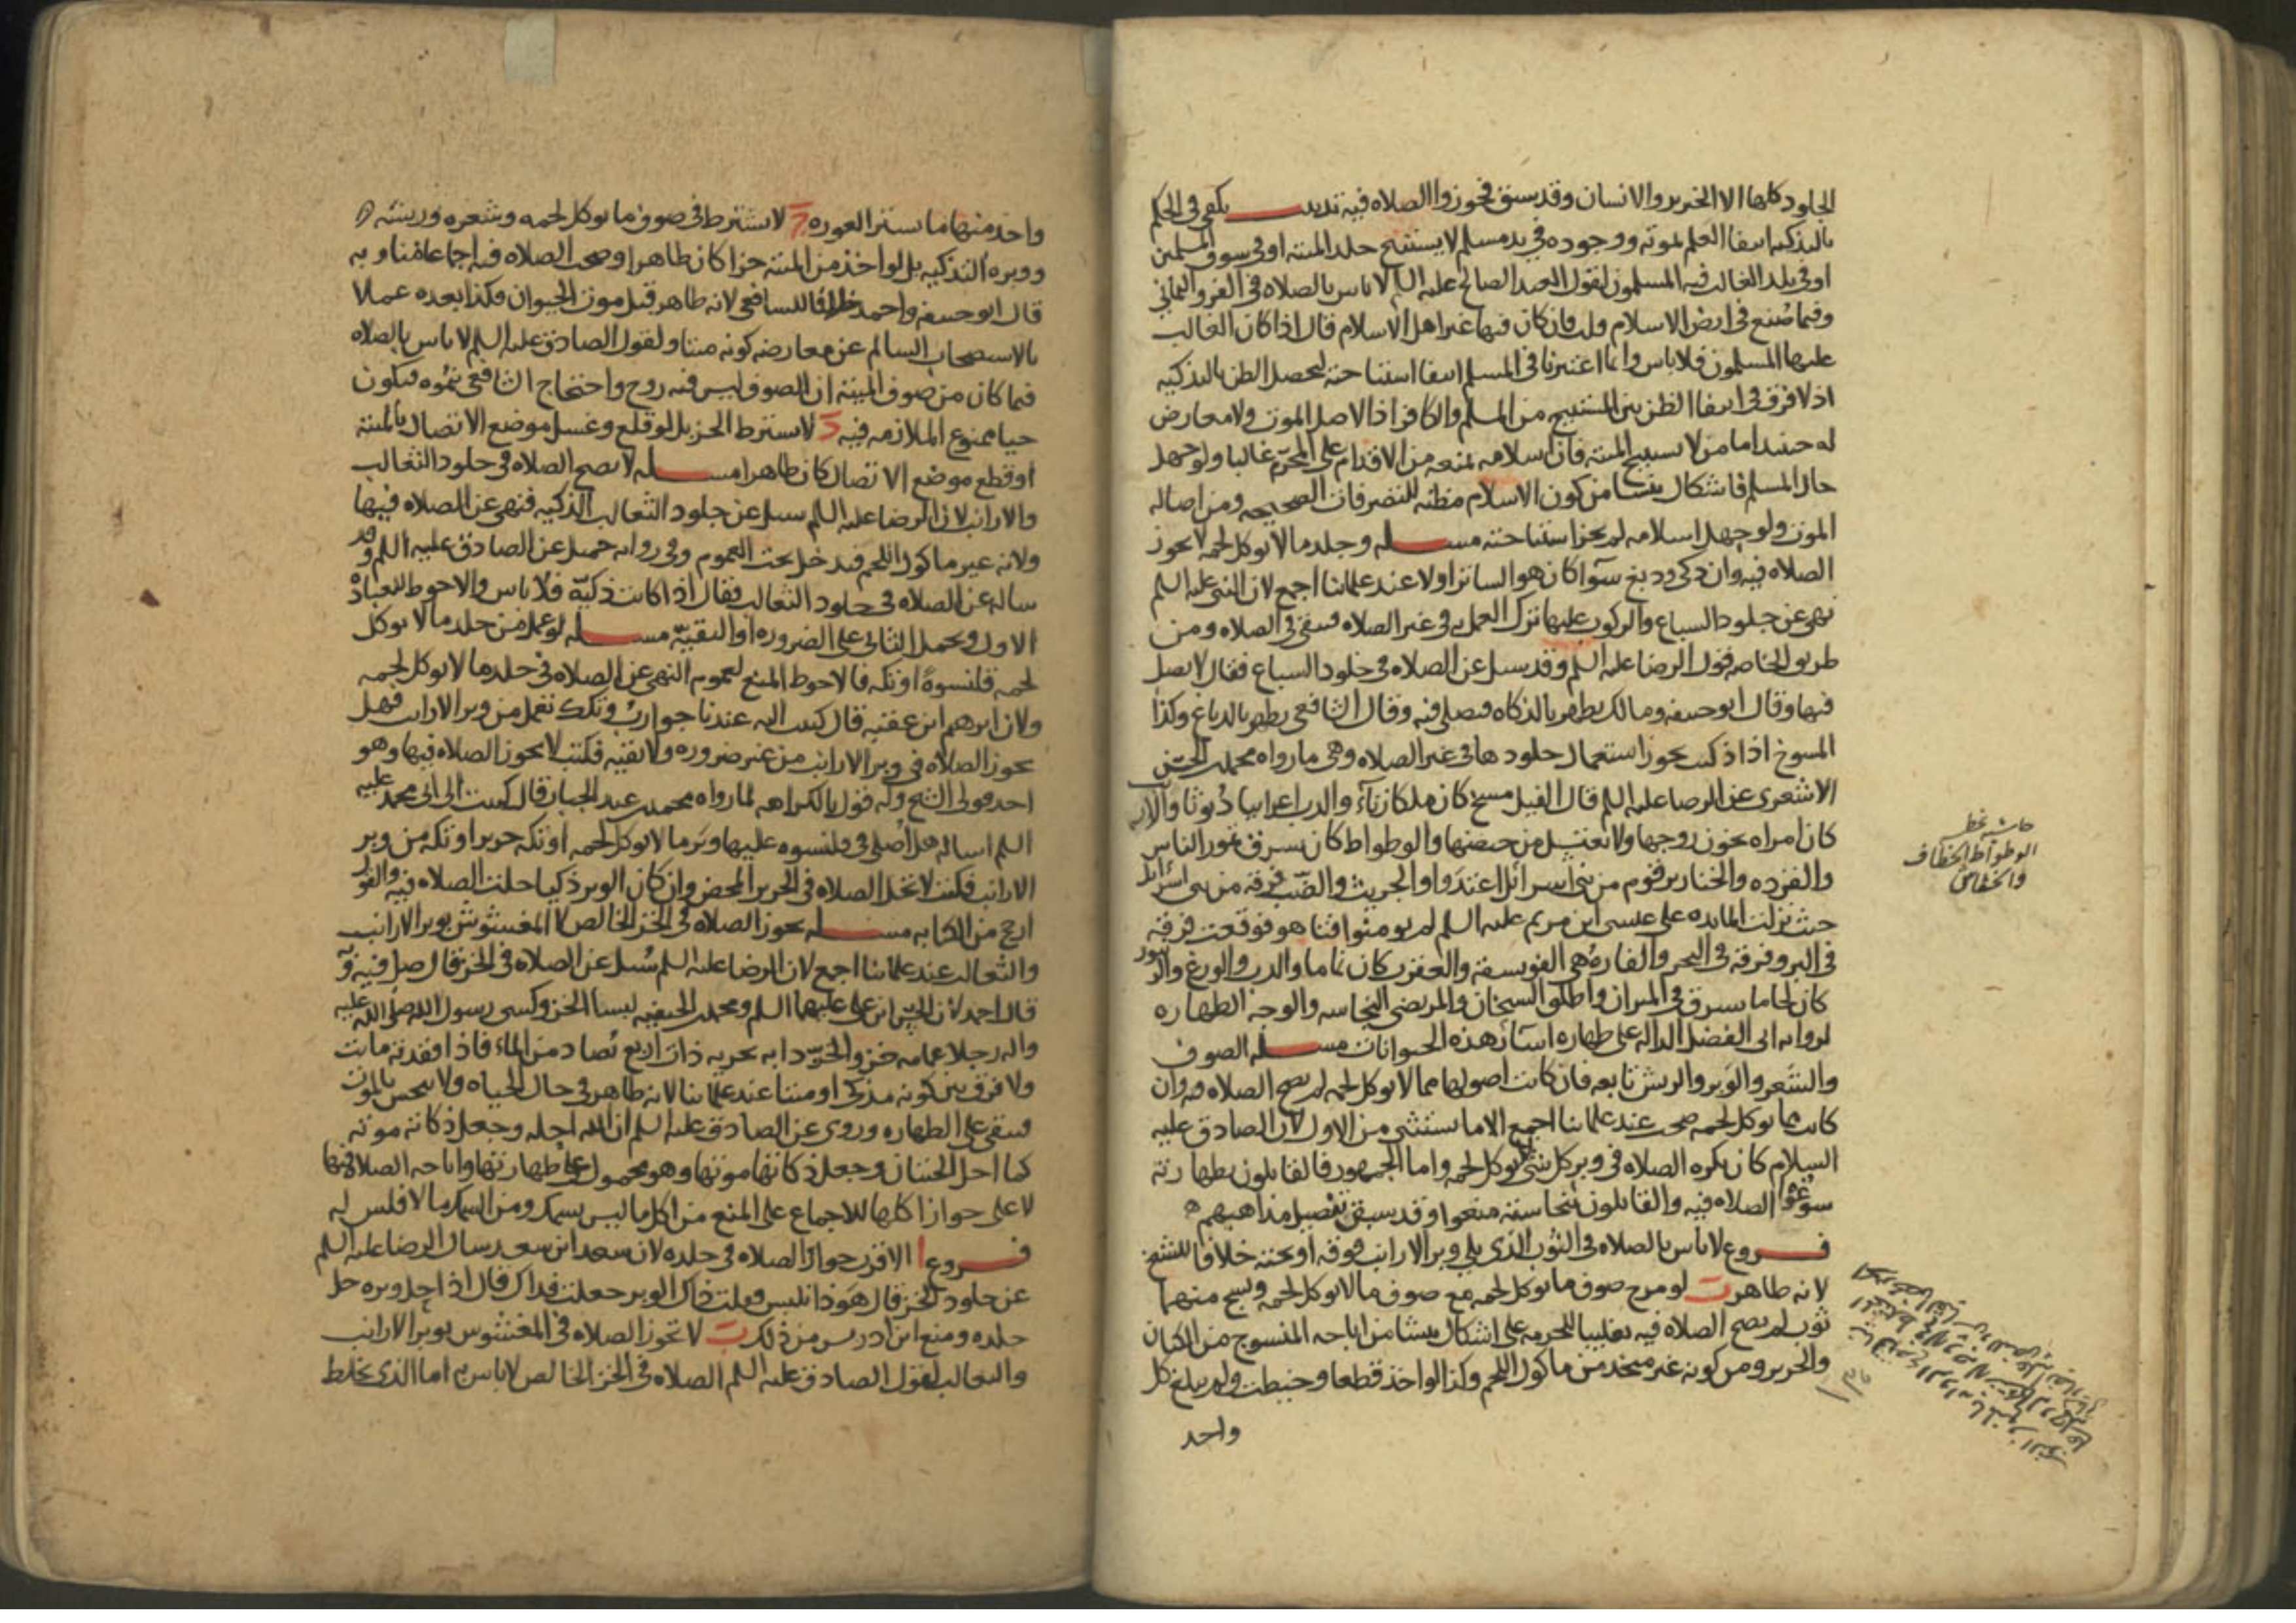 الجلود كلها الا الخنزير والانسان وقد سبق فجوزوا الصلاه فيه تذنيب يكفي في الحكم
بالتذكيه انتفا العلم بموته ووجوده في يد مسلم لا يستبيح جلد الميته او في سوق المسلمين
او في بلد الغالب فيه المسلمون لقول العبد الصالح عليه السلم لا باس بالصلاه في الفرو اليماني
وفيما صُنع في ارض الاسلام قلت فان كان فيها غير اهل الاسلام قال اذا كان الغالب
عليها المسلمون فلا باس وانما اعتبرنا في المسلم انتفا استباحته ليحصل الظن بالتذكيه
اذ لا فرق في انتفا الظن بين المستبيح من المسلم والكافر اذ الاصل الموت ولا معارض
له حينئذ اما من لا يستبيح الميته فان اسلامه يمنعه من الاقدام على المحرّم غالبا ولو جهل
حال المسلم فاشكال ينشا من كون الاسلام مظنه للتصرفات الصحيحه ومن اصاله
الموت ولو جهل اسلامه لم يجز استباحته مسله وجلد ما لا يوكل لحمه لا يجوز
الصلاه فيه وان ذكي ودبغ سوآ كان هو الساتر او لا عند علمائنا اجمع لان النبي عليه السلم
نهى عن جلود السباع والركوب عليها ترك العمل به في غير الصلاه فيبقى في الصلاه ومن
طريق الخاصه قول الرضا عليه السلم وقد سيل عن الصلاه في جلود السباع فقال لا تصل
فيها وقال ابو حنيفه ومالك يطهر بالذكاه فيصلى فيه وقال الشافعي يطهر بالدباغ وكذا
المسوخ اذا ذكيت يجوز استعمال جلودها في غير الصلاه وهي ما رواه محمد بن الحسن
الاشعري عن الرضا عليه السلم قال الفيل مسخ كان ملكا زنآء والدب اعرابيا ديوثا والارنب
كان امراه تخون زوجها ولا تغتسل من حيضها والوطواط كان يسرق تمور الناس
والقرده والخنازير قوم من بني اسرائل اعتدوا والجريث والضب فرقه من بني اسرائل
حيث نزلت المائده على عيسى ابن مريم عليه السلم لم يومنوا فتاهو فوقعت فرقه
في البر وفرقة في البحر والفاره هي الفويسقة والعقرب كان نماما والدب والوزغ والزنبور
كان لحاما يسرق في الميزان واطلق الشيخان والمرتضى النجاسه والوجه الطهاره
لروايه ابي الفضل الداله على طهاره اسآر هذه الحيوانات مسله الصوف
والشعر والوبر والريش تابعه فان كانت اصولها مما لا يوكل لحمه لم يصح الصلاه فيه وان
كانت مما يوكل لحمه صحت عند علمائنا اجمع الا ما يستثنى من الاول لان الصادق عليه
السلام كان يكره الصلاه في وبر كل شي لا يوكل لحمه واما الجمهور فالقايلون بطهارته
سوغوا الصلاه فيه والقايلون بنجاسته منعوا وقد سبق تفصيل مذاهبهم
فروع لا باس بالصلاه في الثوب الذي يلي وبر الارانب فوقه او تحته خلافا للشيخ
لانه طاهر ب لو مزج صوف ما يوكل لحمه مع صوف ما لا يوكل لحمه ونسج منهما
ثوب لم يصح الصلاه فيه تغليبا للحرمه على اشكال ينشا من اباحه المنسوج من الكتان
والحرير ومن كونه غير متخذ من ماكول اللحم وكذا لو اخذ قطعا وخيطت ولم يبلغ كل
واحد
حاشيه بخطه
الوطواط الخطاف
والخفاش
واحد منها ما يستر العوره ج لا يشترط في صوف ما يوكل لحمه وشعره وريشه
ووبره التذكيه بل لو اخذ من الميته جزا كان طاهرا وصحت الصلاه فيه اجماعا منا وبه
قال ابو حنيفه واحمد خلافا للشافعي لانه طاهر قبل موت الحيوان فكذا بعده عملا
بالاستصحاب السالم عن معارضه كونه ميتا ولقول الصادق عليه السلم لا باس بالصلاه
فيما كان من صوف الميته ان الصوف ليس فيه روح واحتجاج الشافعي بنموه فيكون
حيا ممنوع الملازمه فيه د لا يشترط الجز بل لو قلع وغسل موضع الاتصال بالميته
او قطع موضع الاتصال كان طاهرا مسله لا يصح الصلاه في جلود الثعالب
والارانب لان الرضا عليه السلم سيل عن جلود الثعالب الذكيه فنهى عن الصلاه فيها
ولانه غير ماكول اللحم فيدخل تحت العموم وفي روايه جميل عن الصادق عليه السلم وقد
ساله عن الصلاه في جلود الثعالب فقال اذا كانت ذكيّة فلا باس والاحوط للعباده
الاول ويحمل الثاني على الضروره او التقيّه مسله لو عمل من جلد ما لا يوكل
لحمه قلنسوة او تكه فالاحوط المنع لعموم النهي عن الصلاه في جلد ما لا يوكل لحمه
ولان ابرهيم ابن عقبه قال كتبت اليه عندنا جوارب وتكك تعمل من وبر الارانب فهل
يجوز الصلاه في وبر الارانب من غير ضروره ولا تقيه فكتب لا يجوز الصلاه فيها وهو
احد قولي الشيخ وله قول بالكراهه لما رواه محمد بن عبد الجبار قال كتبت الى ابي محمد عليه
السلم اساله هل اصلي في قلنسوه عليها وبر ما لا يوكل لحمه او تكه حرير او تكه من وبر
الارانب فكتب لا تحل الصلاه في الحرير المحض وان كان الوبر ذكيا حلت الصلاه فيه والقول
ارجح من الكتابه مسله يجوز الصلاه في الخز الخالص لا المغشوش بوبر الارانب
والثعالب عند علمائنا اجمع لان الرضا عليه السلم سُيل عن الصلاه في الخز قال صل فيه وبه
قال احمد لان الحسين ابن علي عليهما السلم ومحمد بن الحنفيه لبسا الخز وكسى رسول الله صلى الله عليه
واله رجلا عمامه خز والخز دابه بحريه ذات اربع تصاد من الماء فاذا فقدته ماتت
ولا فرق بين كونه مذكى او ميتا عند علمائنا لانه طاهر في حال الحياه ولا ينجس بالموت
فيبقى على الطهاره وروى عن الصادق عليه السلم ان الله احله وجعل ذكاته موته
كما احل الحيتان وجعل ذكاتها موتها وهو محمول على طهارتها واباحه الصلاه فيها
لا على جواز اكلها للاجماع على المنع من اكل ما ليس بسمك ومن السمك ما لا فلس له
فروع ا الاقرب جواز الصلاه في جلده لان سعد ابن سعد سال الرضا عليه السلم
عن جلود الخز قال هو ذا نلبس فقلت ذاك الوبر جعلت فداك قال اذا حل وبره حل
جلده ومنع ابن ادريس من ذلك ب لا تجوز الصلاه في المغشوش بوبر الارانب
والثعالب لقول الصادق عليه السلم الصلاه في الخز الخالص لا باس به اما الذي يخلط